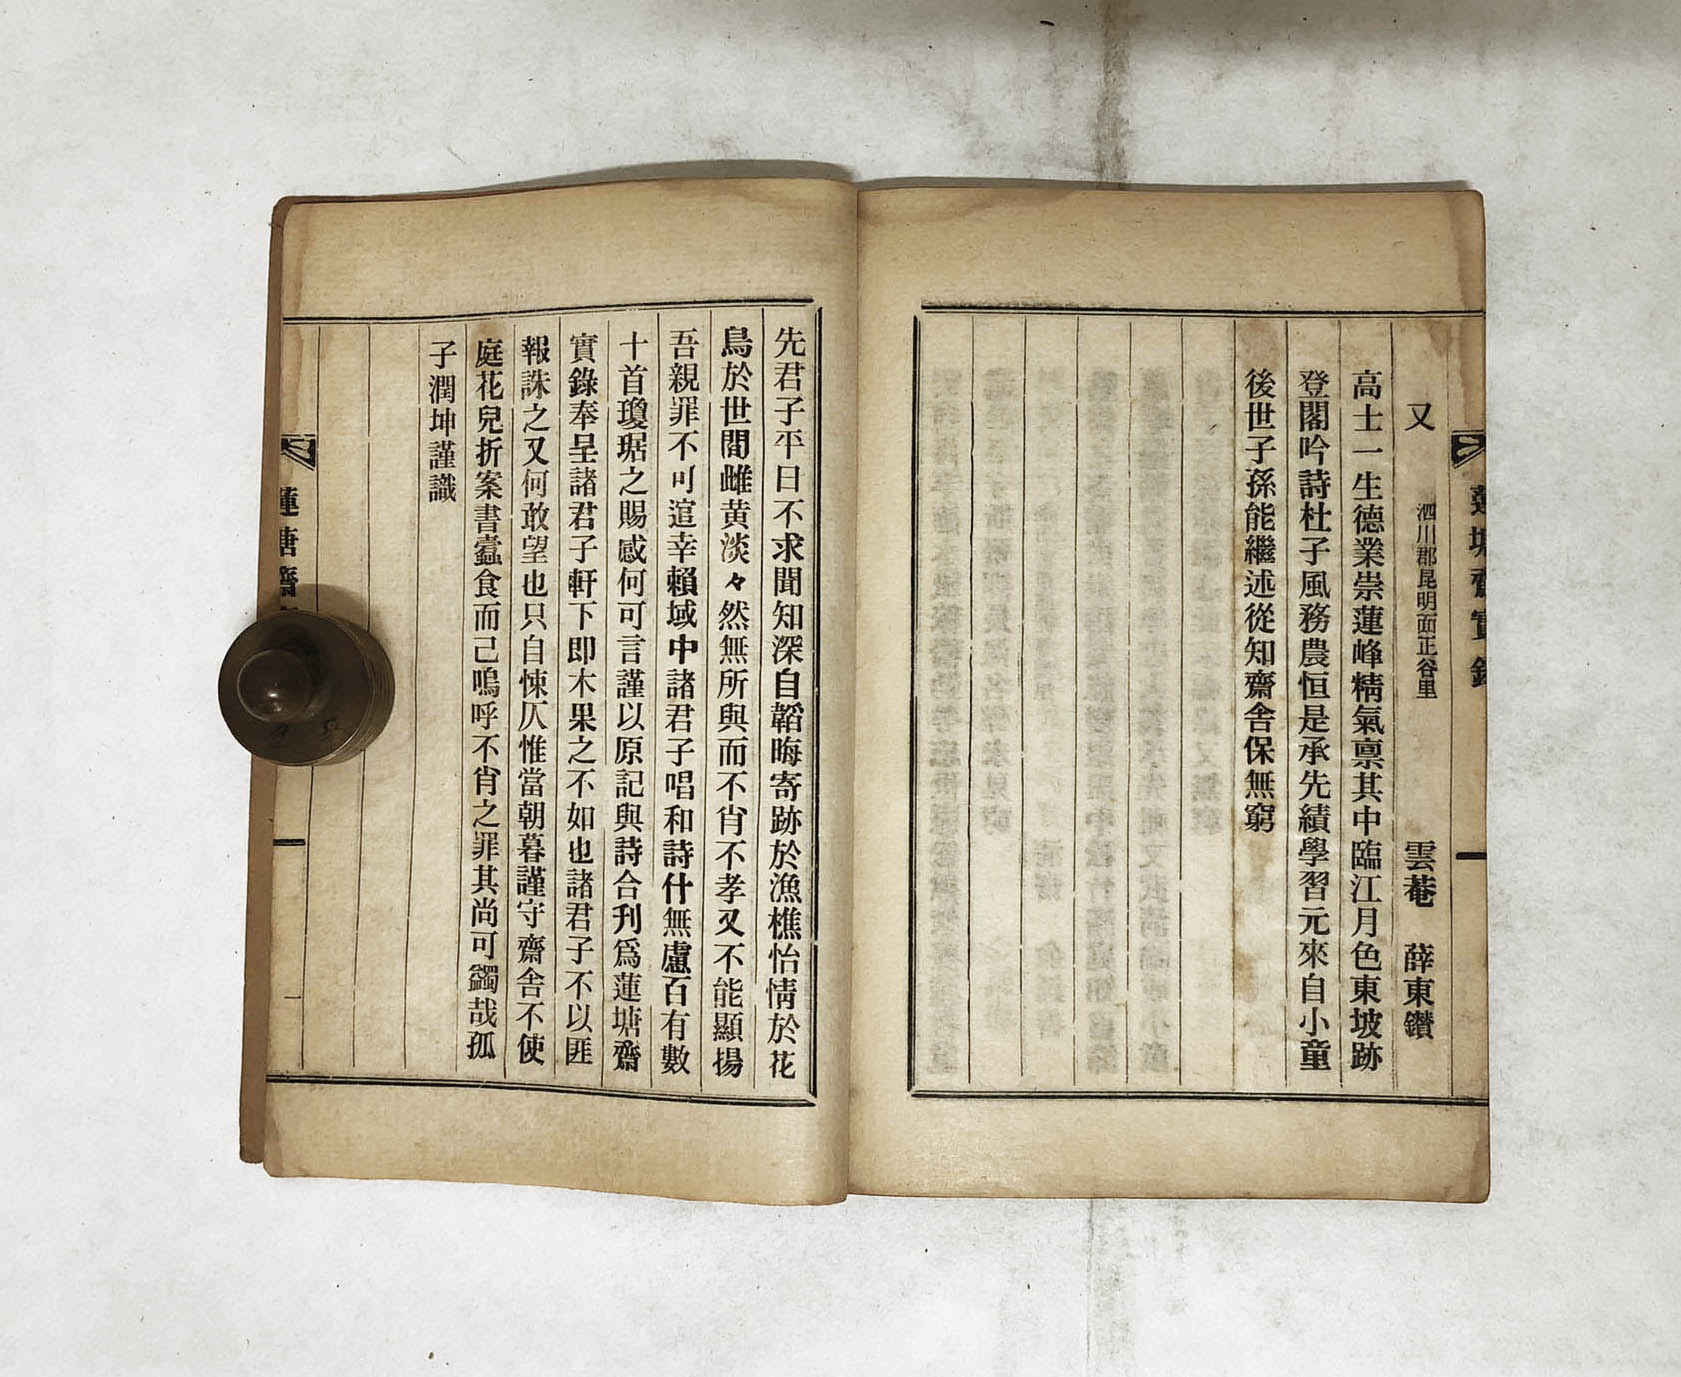 蓮塘齋實錄
又 泗川郡昆明面正谷里 雲菴 薛東鑽
高士一生德業崇蓮峰精氣禀其中臨江月色東坡跡
登閣吟詩杜子風務農恒是承先績學習元來自小童
後世子孫能繼述從知齋舍保無窮
先君子平日不求聞知深自韜晦寄跡於漁樵怡情於花
鳥於世間雌黄淡々然無所與而不肖不孝又不能顯揚
吾親罪不可逭幸賴域中諸君子唱和詩什無慮百有數
十首瓊琚之賜感何可言謹以原記與詩合刊爲蓮塘齋
實錄奉呈諸君子軒下即木果之不如也諸君子不以匪
報誅之又何敢望也只自悚仄惟當朝暮謹守齋舍不使
庭花兒折案書蠹食而己嗚呼不肖之罪其尚可蠲哉孤
子潤坤謹識
蓮塘齋
一